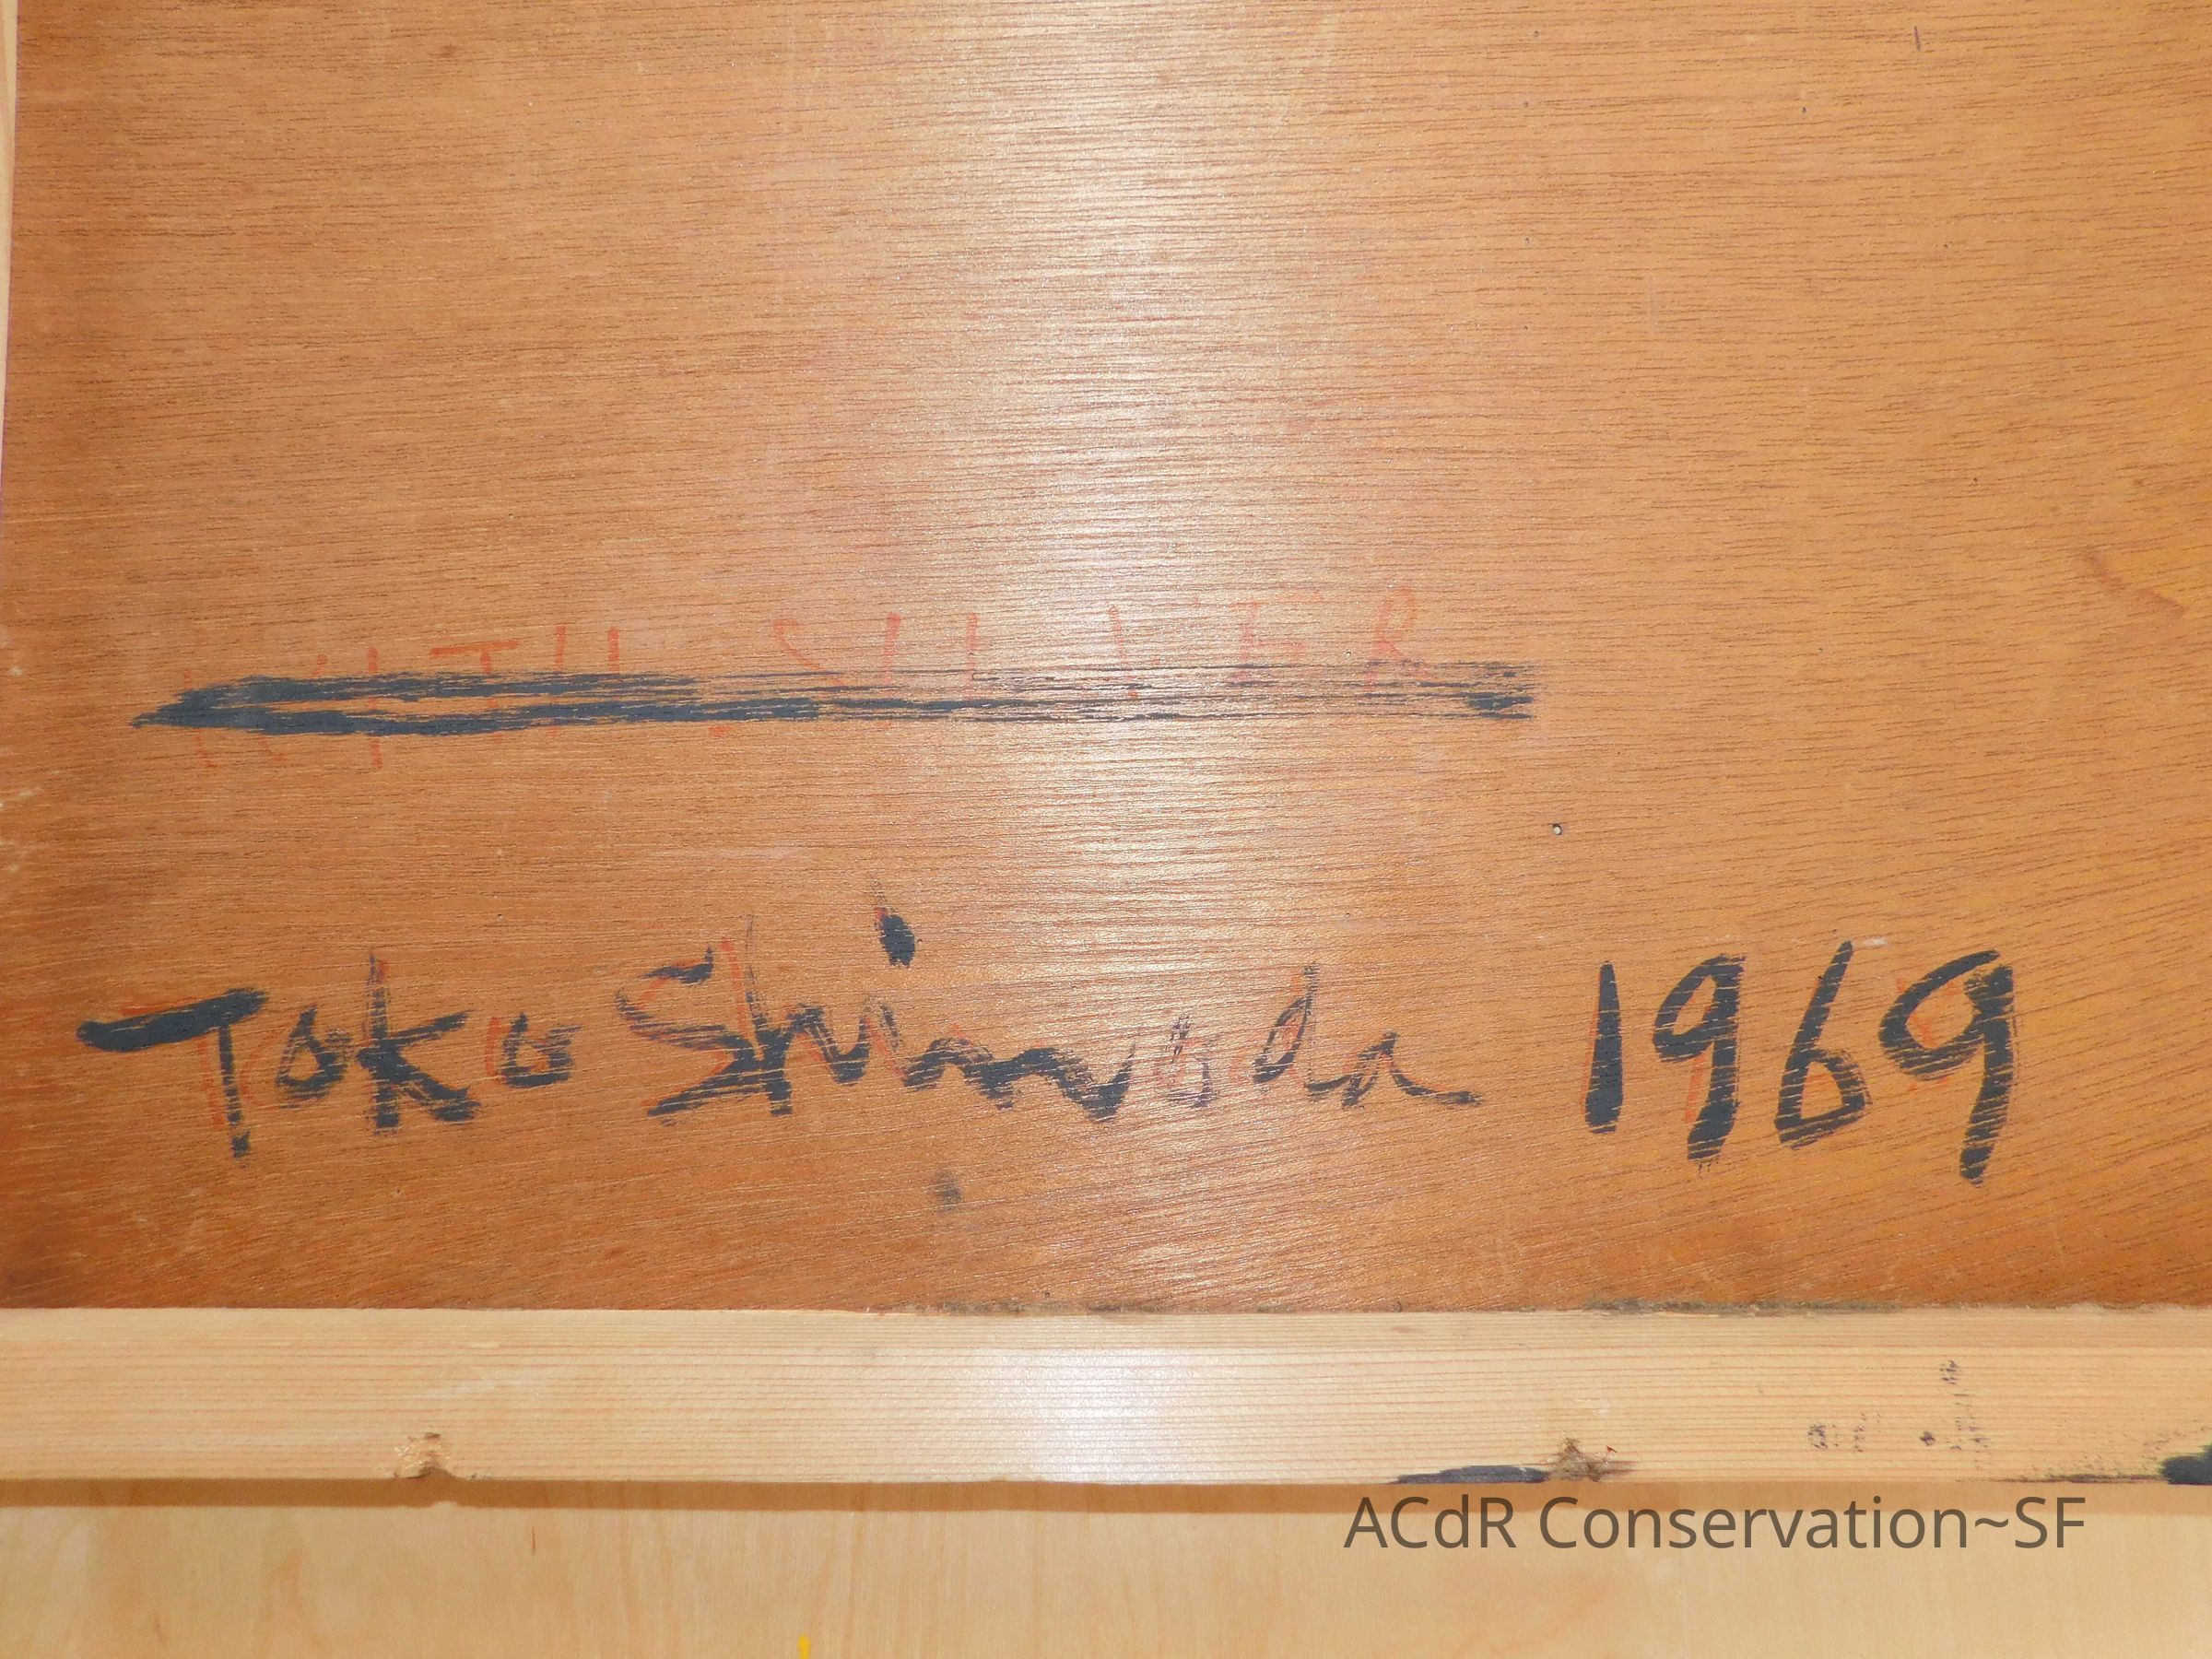 WITH SILVER
Toko Shinoda 1969
ACdR Conservation~SF